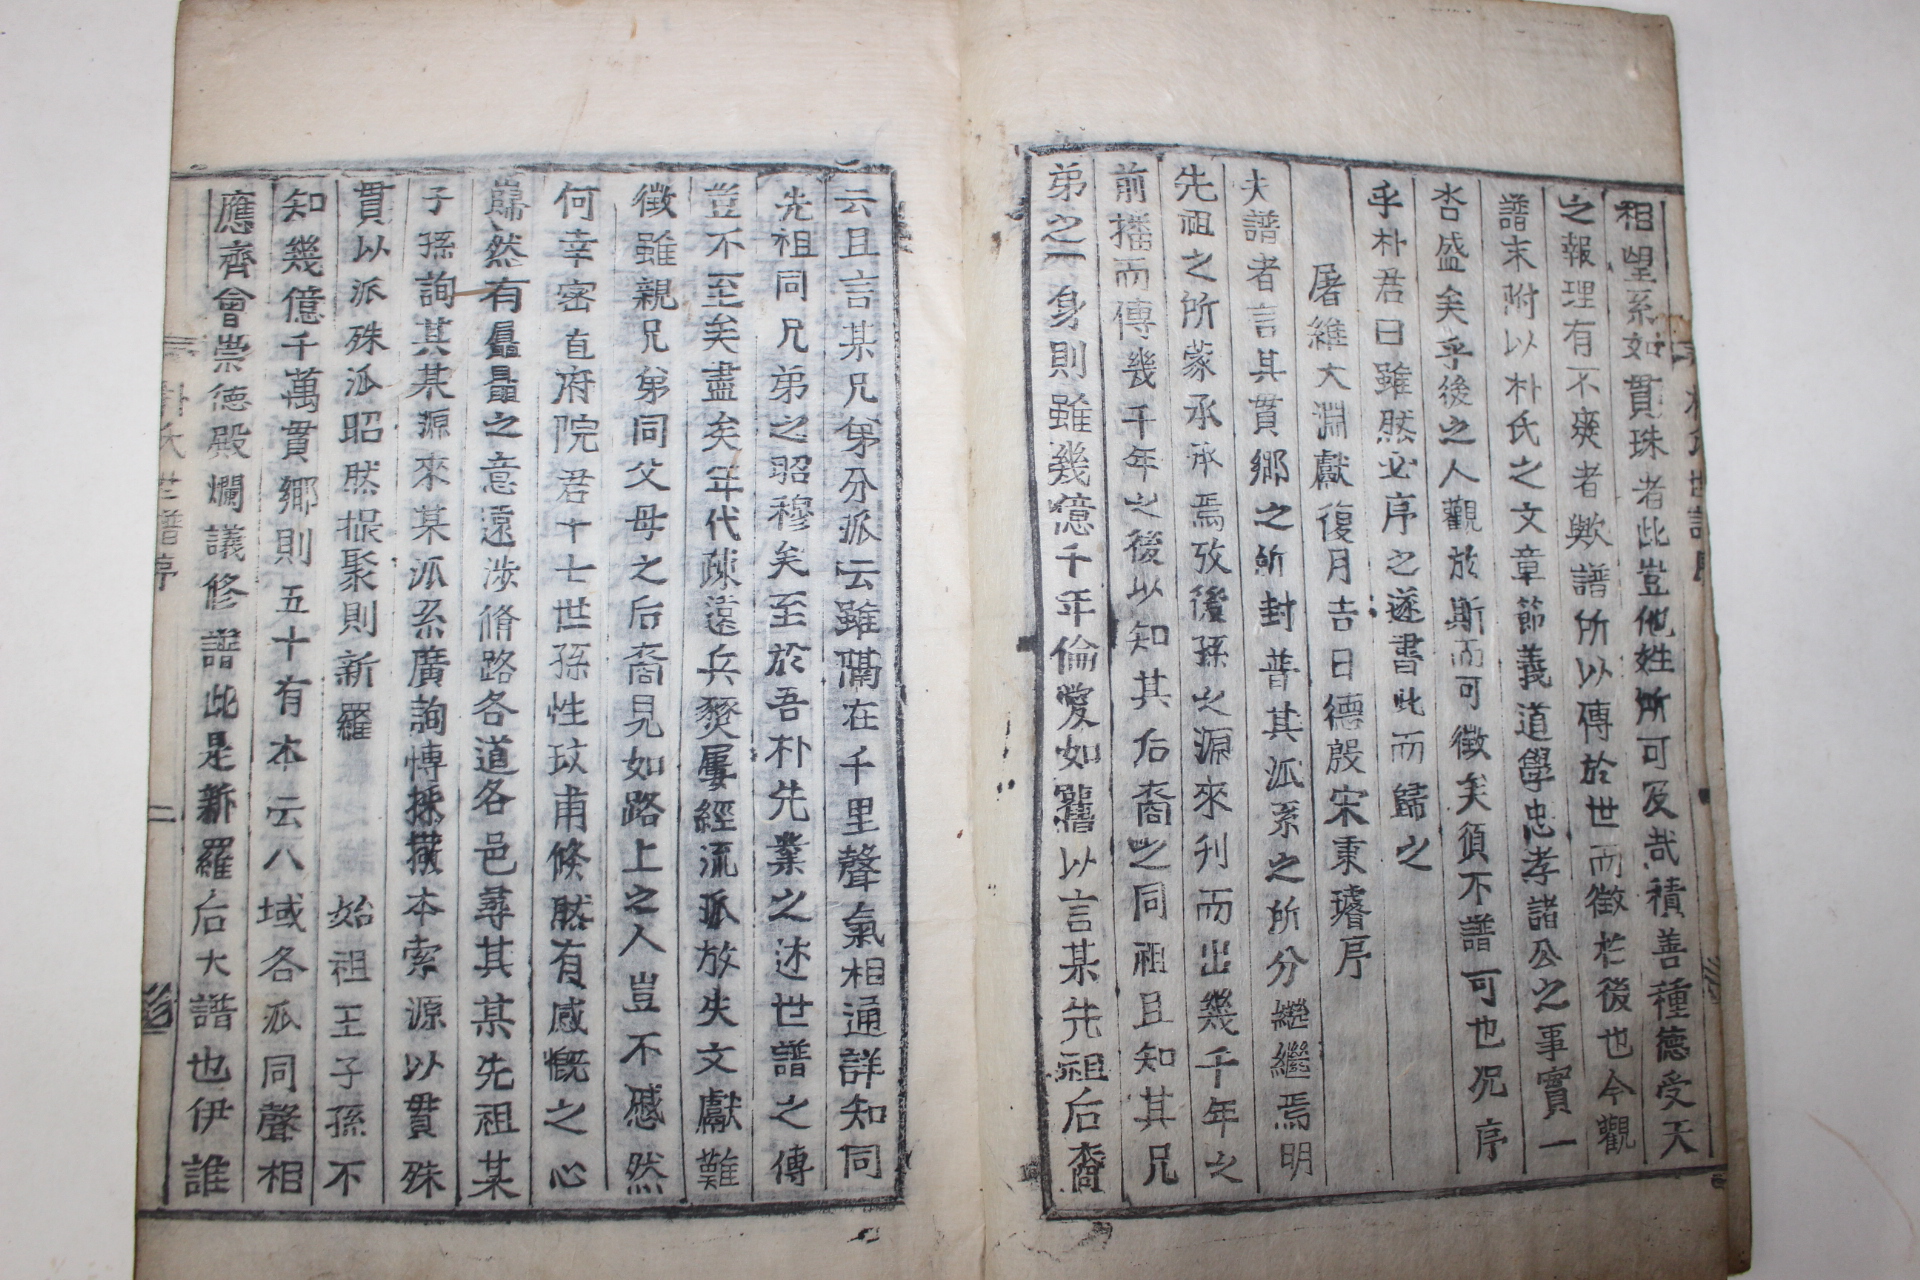 相望系如貫珠者此豈他姓所可及哉積善種德受天
之報理有不爽者歟譜所以傳於世而徵於後也今觀
譜末附以朴氏之文章節義道學忠孝諸公之事實一
呑盛矣乎後之人觀於斯而可徵矣須不譜可也況序
乎朴君曰雖然必序之遂書此而歸之
屠維大淵獻復月吉日德殷宋秉璿序
夫譜者言其貫鄉之所封普其派系之所分繼繼焉明
先祖之所蒙承承焉攷後孫之源來刋而出幾千年之
前播而傳幾千年之後以知其后裔之同祖且知其兄
弟之一身則雖幾億千年倫愛如舊以言某先祖后裔
云且言某兄弟分派云雖隔在千里聲氣相通詳知同
先祖同兄弟之昭穆矣至於吾朴先業之述世譜之傳
豈不至矣盡矣年代疎遠兵燹屢經流派放失文獻難
徵雖親兄弟同父母之后裔見如路上之人豈不慽然
何幸密直府院君十七世孫性玟甫倏然有感慨之心
巋然有贔屭之意遠涉脩路各道各邑尋其某先祖某
子孫詢其某源來某派系廣詢博採攟本索源以貫殊
貫以派殊派昭然撮聚則新羅 始祖王子孫不
知幾億千萬貫鄉則五十有本云八域各派同聲相
應齊會崇德殿爛議修譜此是新羅后大譜也伊誰
朴氏世譜序
二